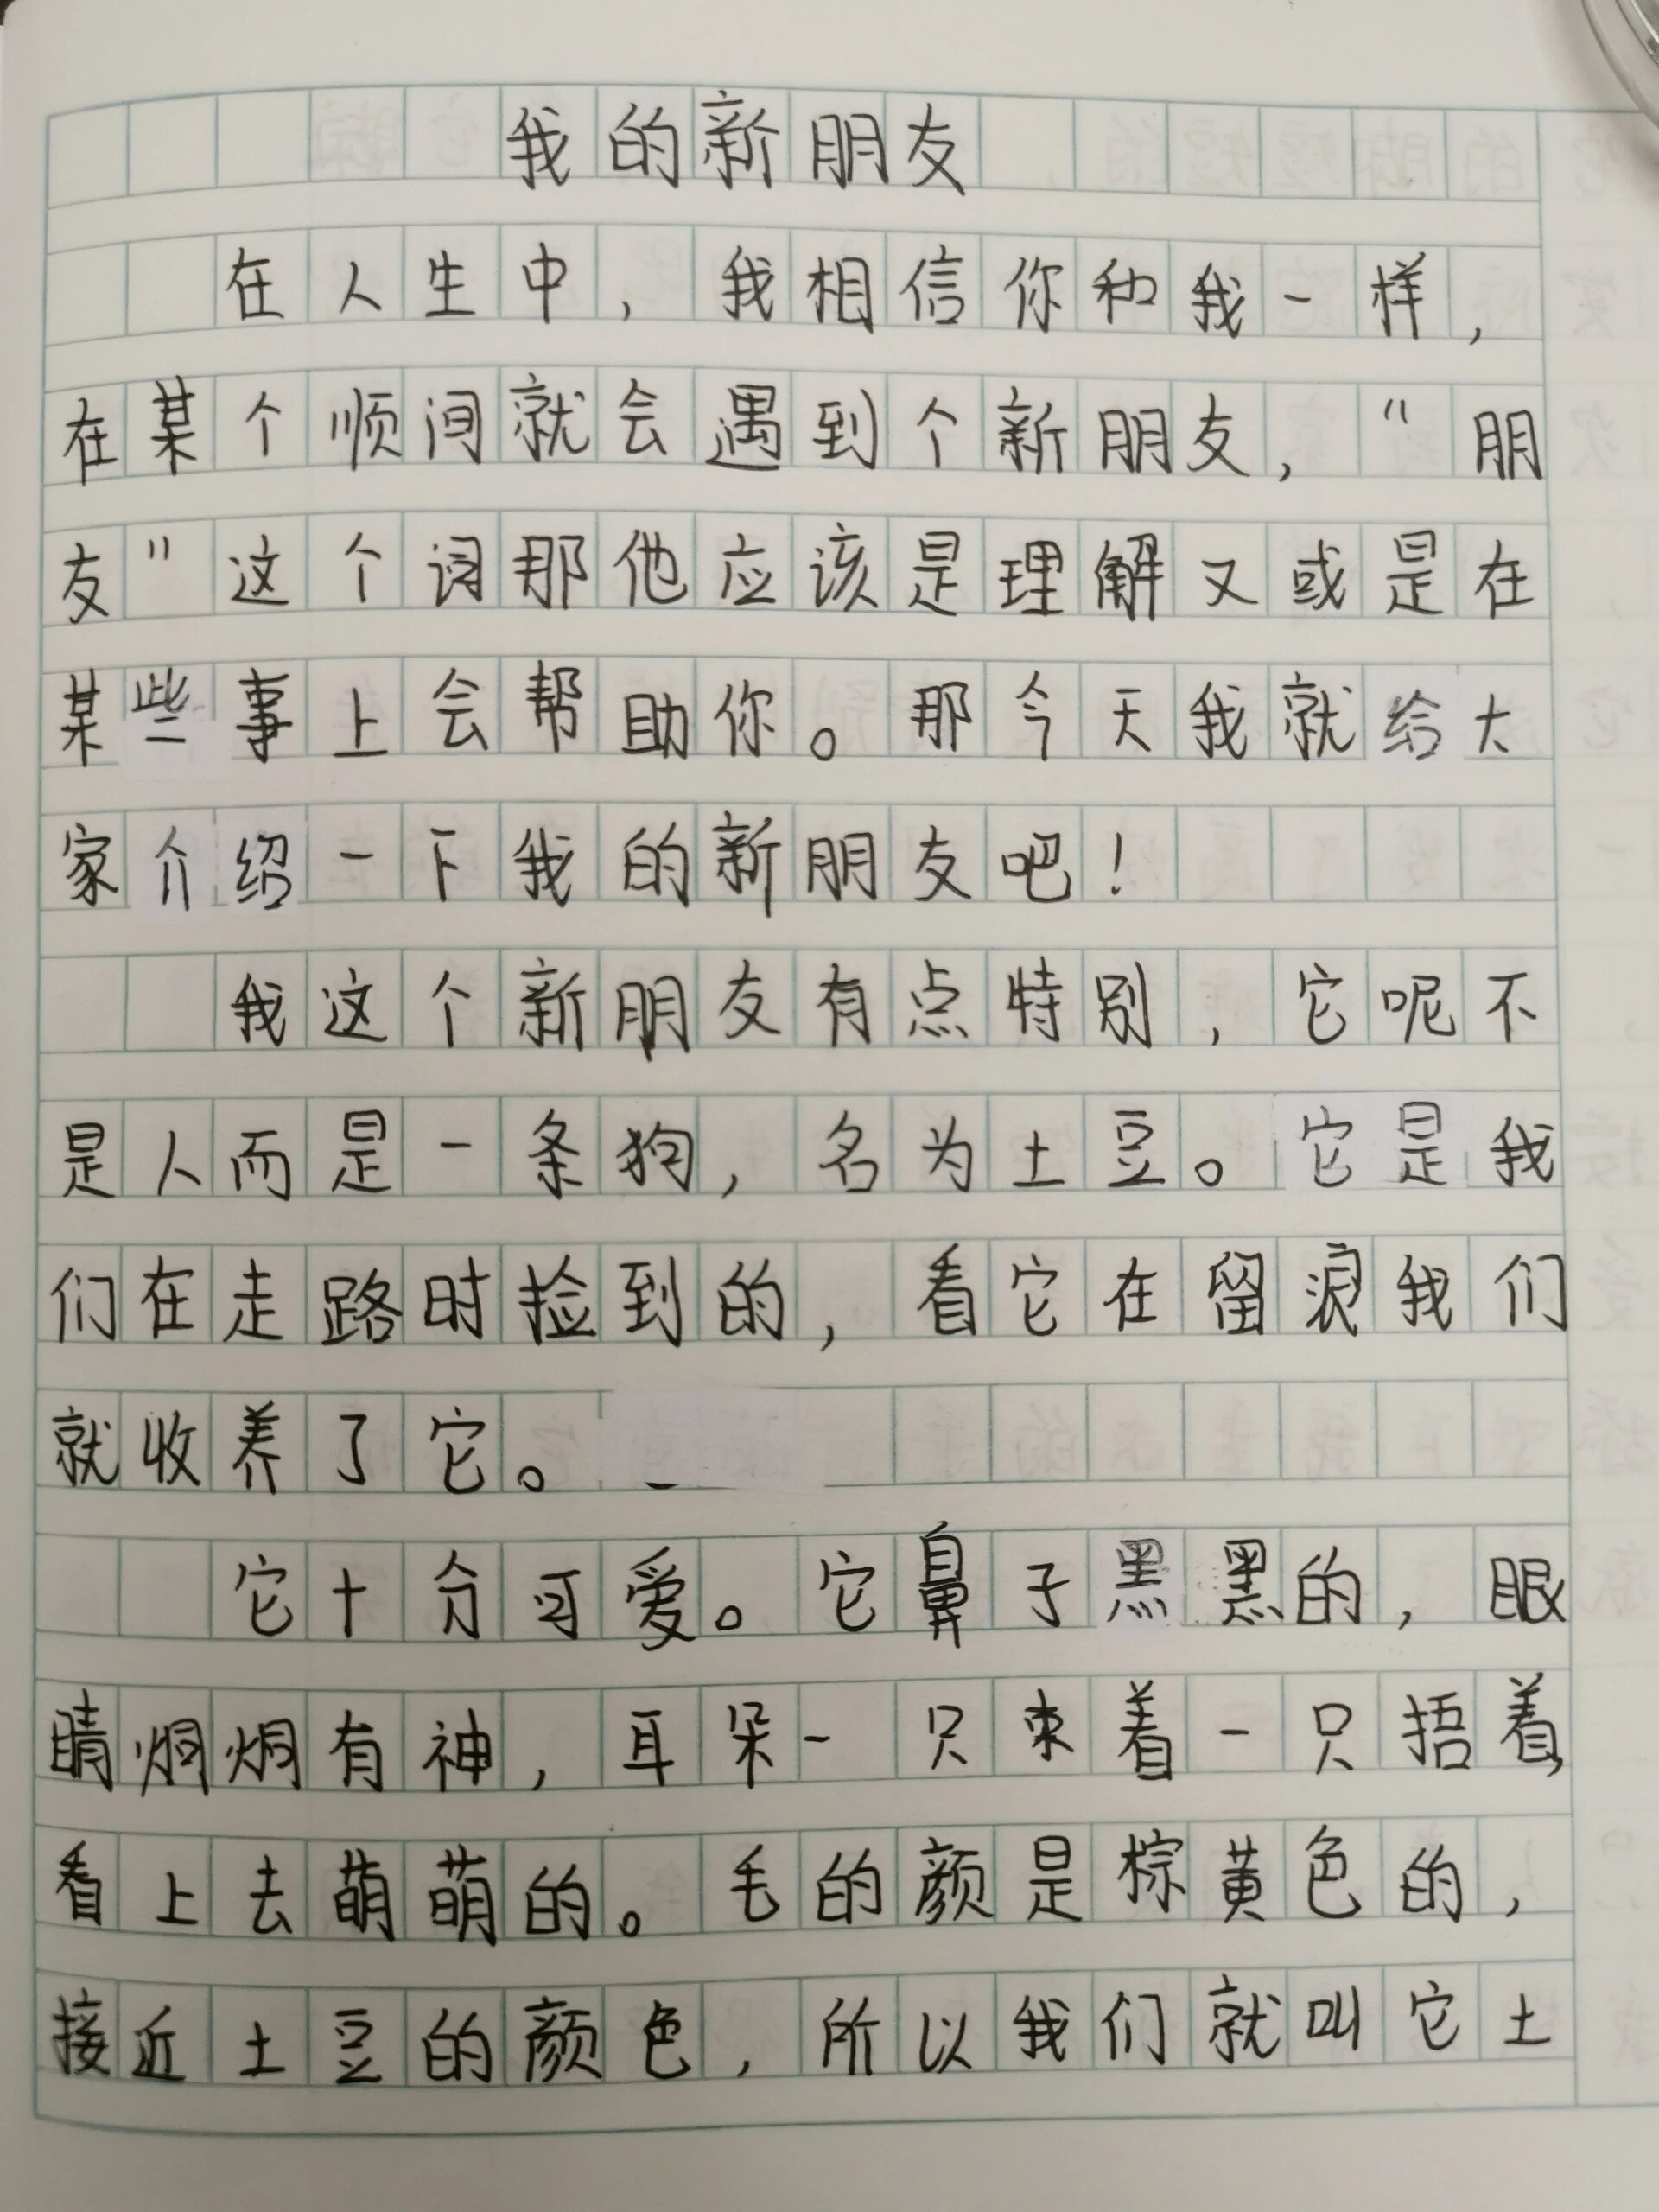 我的新朋友
在人生中，我相信你和我一样，
在某个顺间就会遇到个新朋友，“朋
友”这个词那他应该是理解又或是在
某些事上会帮助你。那今天我就给大
家介绍一下我的新朋友吧！
我这个新朋友有点特别，它呢不
是人而是一条狗，名为土豆。它是我
们在走路时捡到的，看它在留浪我们
就收养了它。
它十分可爱。它鼻子黑黑的，眼
睛炯炯有神，耳朵一只束着一只捂着，
看上去萌萌的。毛的颜是棕黄色的，
接近土豆的颜色，所以我们就叫它土